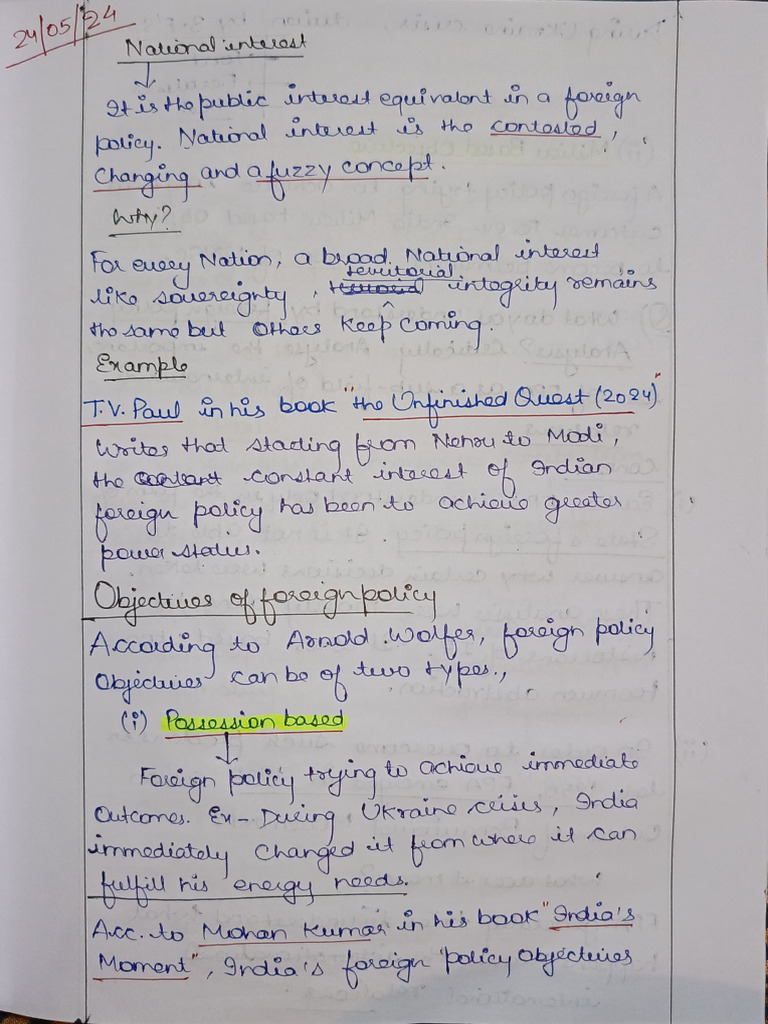 24/05/24
National interest
It is the public interest equivalent in a foreign
policy. National interest is the contested,
Changing and a fuzzy concept.
Why?
For every Nation, a broad National interest
territorial
like sovereignty, integrity remains
the same but others keep coming.
Example
T.V. Paul in his book "the Unfinished Quest (2024)"
writes that starting from Nehru to Modi,
the constant interest of Indian
foreign policy has been to achieve greater
power status.
Objectives of foreign policy
According to Arnold Wolfer, foreign policy
Objectives can be of two types.,
(i) Possession based
Foreign policy trying to achieve immediate
Outcomes. Ex- During Ukraine crisis, India
immediately changed it from where it can
fulfill his energy needs.
Acc. to Mohan Kumar in his book "India's
Moment", India's foreign policy Objectives